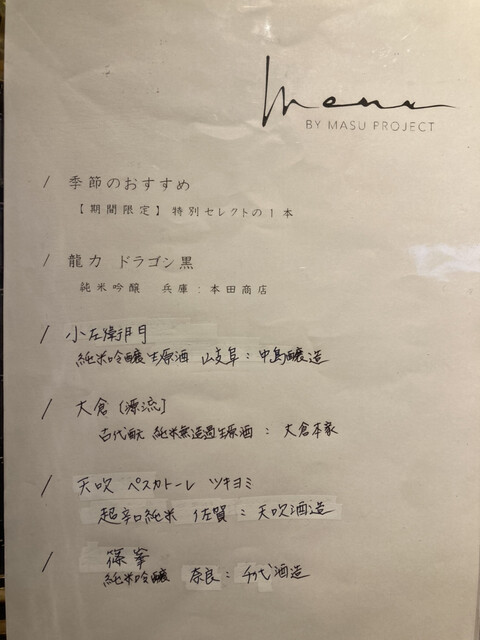 menu
BY MASU PROJECT
/ 季節のおすすめ
【期間限定】特別セレクトの1本
/ 龍力 ドラゴン黒
純米吟醸 兵庫:本田商店
/ 小左衛門
純米吟醸生原酒 山岐阜:中島醸造
/ 大倉〔源流〕
古代酛 純米無造過生原酒:大倉本家
/ 天吹 ペスカトーレ ツキヨミ
超辛口純米 佐賀:天吹酒造
/ 篠峯
純米吟醸 奈良:千代酒造